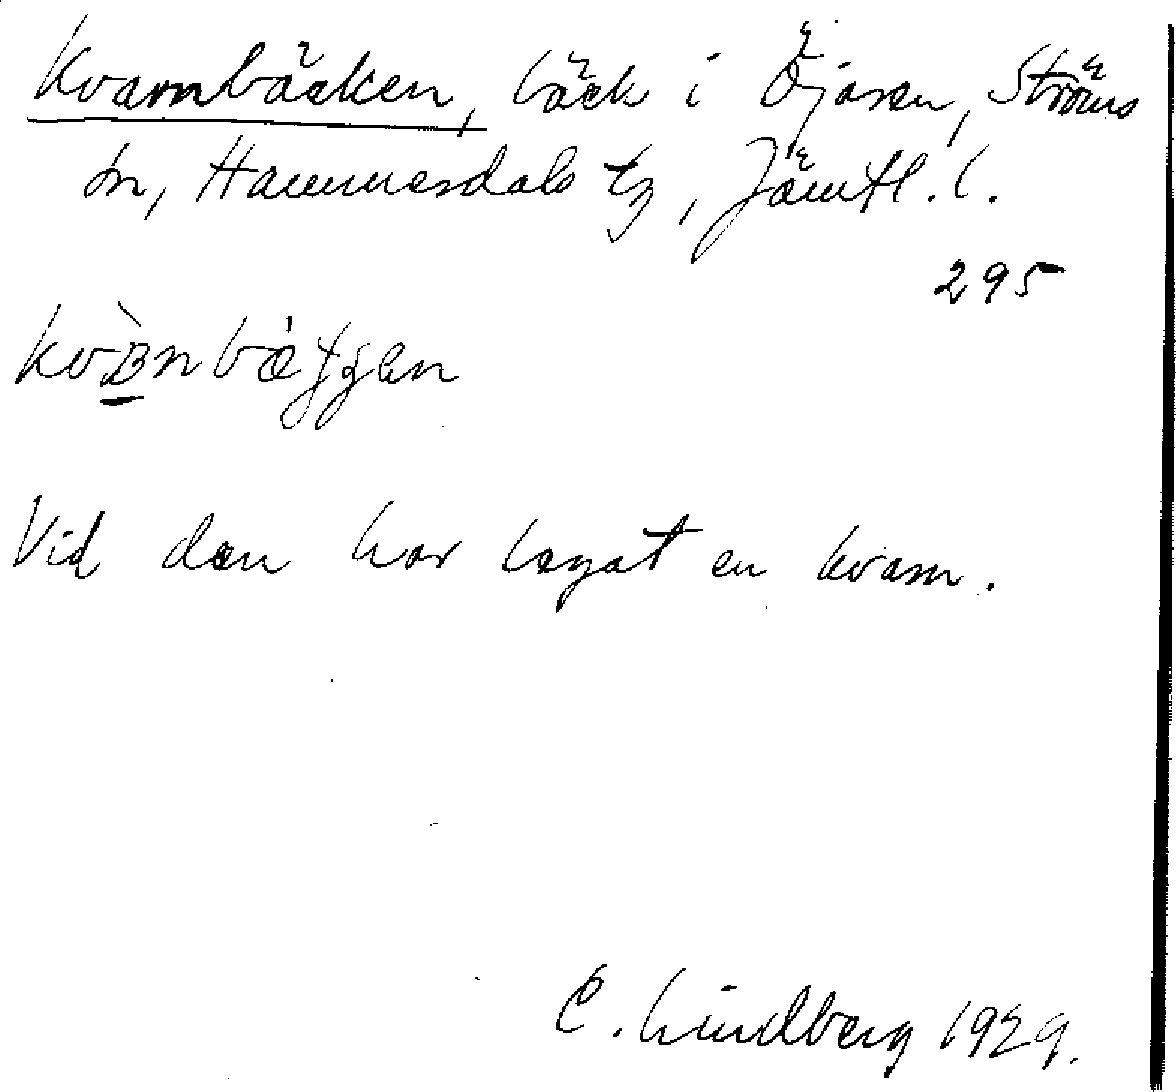 Kvarnbäcken, bäck i Öjaren, Ströms
sn, Hammerdals tg, Jämtl. l.
295
Vid den har legat en kvarn.
C. Lindberg 1929.